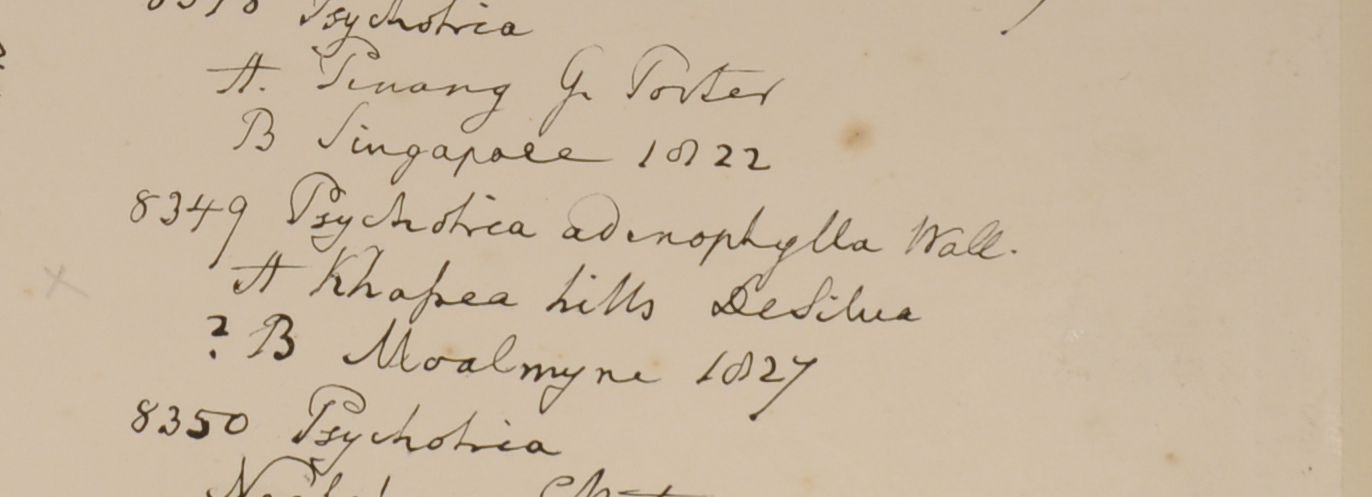 Psychotria
A. Pinang G. Porter
B Singapore 1822
8349 Psychotria adenophylla Wall.
A Khasea hills DeSilva
? B Moalmyne 1827
8350 Psychotria